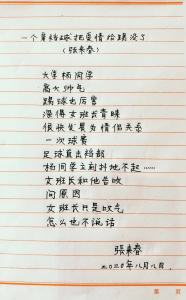 一个穿裆球把爱情给踢没了
(张来春)
大学杨同学
高大帅气
踢球也厉害
深得女班长青睐
很快发展为情侣关系
一次球赛
足球直击裆部
杨同学立刻扑地不起……
女班长和他告吹
问原因
女班长只是叹气
怎么也不说话
张来春
2020年八月八日
第 页